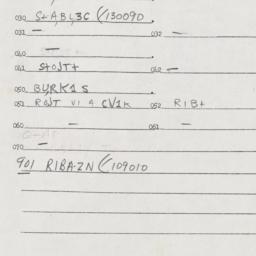 030 S+ABL3C (/130090.
031 — 032 —
040 —
041 StOJT+ 042 —
050 BURK1S
051 ROJT VI 9 CV1K 052 RIB+
060 — 061 —
070 —
901 RIBAZN (/109010